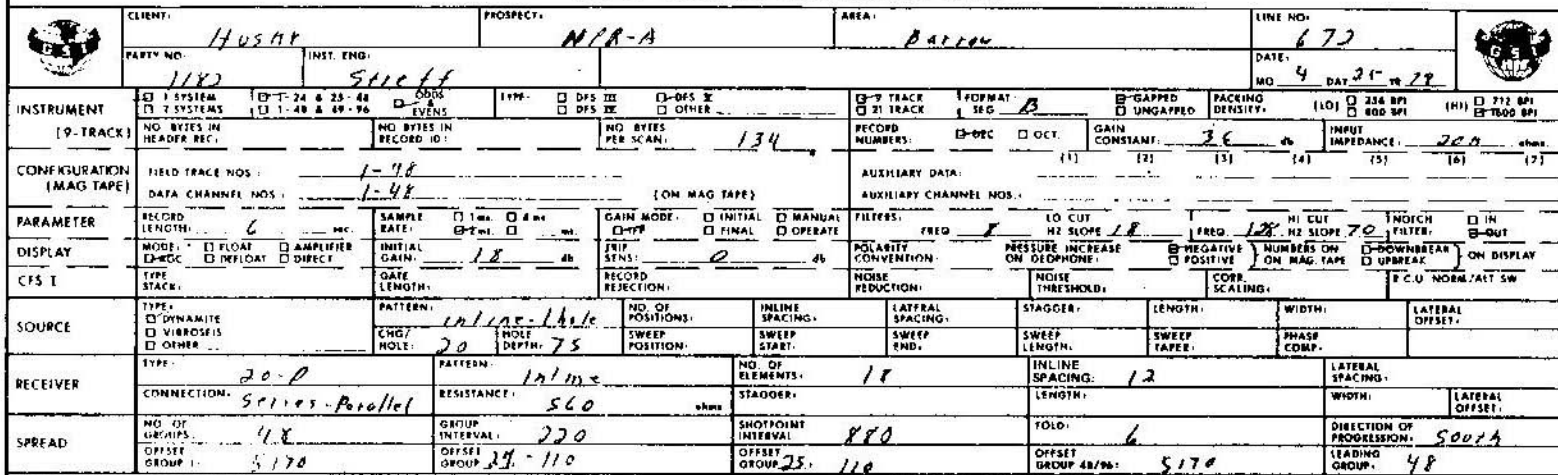 GSI
CLIENT: Husky PROSPECT: NPR-A AREA: Barrow LINE NO: 672
PARTY NO. 1182 INST. ENG: Streff DATE: MO 4 DAY 25 YR 79
INSTRUMENT 1 SYSTEM 2 SYSTEMS 1-24 & 25-48 1-48 & 49-96 ODDS & EVENS TYPE: DFS III DFS IV DFS V OTHER 9 TRACK 21 TRACK FORMAT: SEG B GAPPED UNGAPPED PACKING DENSITY: (LO) 256 BPI 800 BPI (HI) 712 BPI 1600 BPI
(9-TRACK) NO BYTES IN HEADER REC: NO BYTES IN RECORD ID: NO BYTES PER SCAN: 134 RECORD NUMBERS: DEC OCT. GAIN CONSTANT: 36 db INPUT IMPEDANCE: 20M ohms
(1) (2) (3) (4) (5) (6) (7)
CONFIGURATION (MAG TAPE) FIELD TRACE NOS: 1-48 AUXILIARY DATA:
DATA CHANNEL NOS: 1-48 (ON MAG TAPE) AUXILIARY CHANNEL NOS:
PARAMETER RECORD LENGTH: 6 sec. SAMPLE RATE: 1 ms. 4 ms 2 ms. ms. GAIN MODE: INITIAL MANUAL IFP FINAL OPERATE FILTERS: LO CUT FREQ 8 HZ SLOPE 18 HI CUT FREQ 128 HZ SLOPE 70 NOTCH FILTER: IN OUT
DISPLAY MODE: FLOAT AMPLIFIER AGC DEFLOAT DIRECT INITIAL GAIN: 18 db TRIP SENS: 0 db POLARITY CONVENTION: PRESSURE INCREASE ON GEOPHONE: NEGATIVE POSITIVE NUMBERS ON MAG. TAPE DOWNBREAK UPBREAK ON DISPLAY
CFS I TYPE STACK: GATE LENGTH: RECORD REJECTION: NOISE REDUCTION: NOISE THRESHOLD: CORR. SCALING: R.C.U NORM/ALT SW
SOURCE TYPE: DYNAMITE VIBROSEIS OTHER PATTERN: inline-1 hole NO. OF POSITIONS: INLINE SPACING: LATERAL SPACING: STAGGER: LENGTH: WIDTH: LATERAL OFFSET:
CHG/HOLE: 20 HOLE DEPTH: 75 SWEEP POSITION: SWEEP START: SWEEP END: SWEEP LENGTH: SWEEP TAPER: PHASE COMP:
RECEIVER TYPE: 20-D PATTERN: Inline NO. OF ELEMENTS: 18 INLINE SPACING: 12 LATERAL SPACING:
CONNECTION: Series-Parallel RESISTANCE: 560 ohms STAGGER: LENGTH: WIDTH: LATERAL OFFSET:
SPREAD NO. OF GROUPS: 48 GROUP INTERVAL: 220 SHOTPOINT INTERVAL 880 FOLD: 6 DIRECTION OF PROGRESSION: South
OFFSET GROUP 1: 5170 OFFSET GROUP 24: -110 OFFSET GROUP 25: 110 OFFSET GROUP 48/96: 5170 LEADING GROUP: 48
GSI